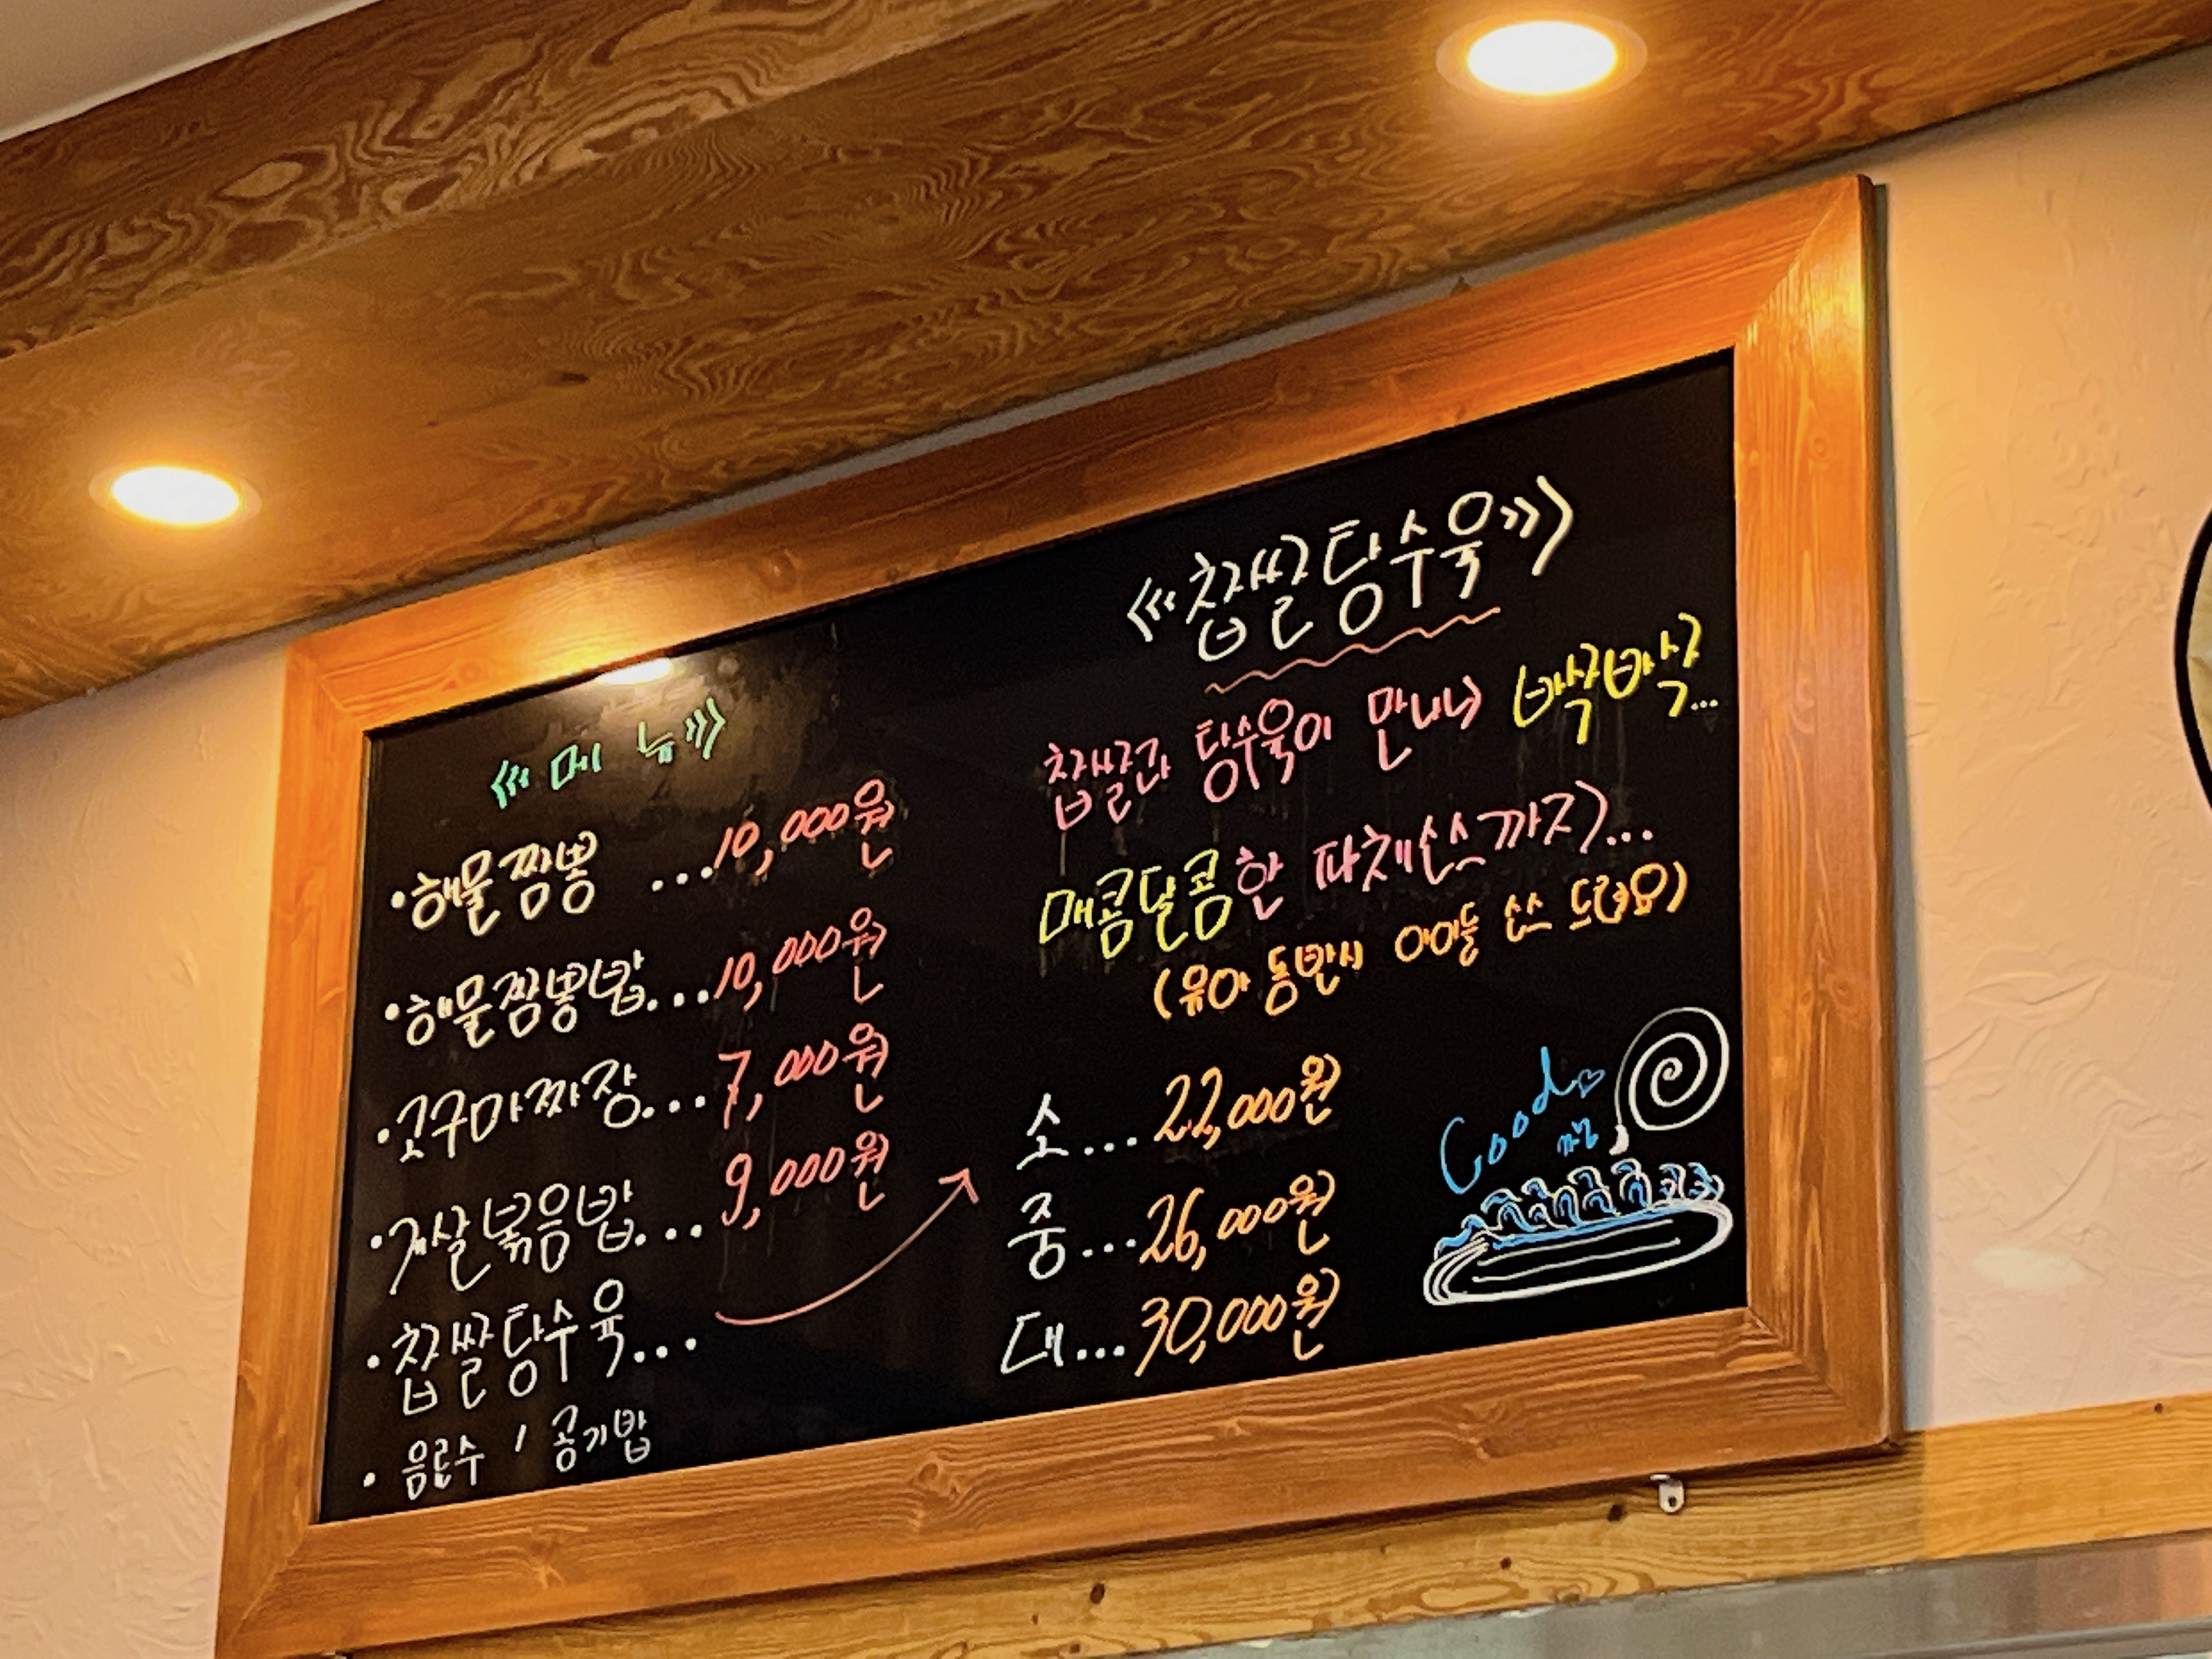 《메 뉴》
·해물짬뽕 ...10,000원
·해물짬뽕밥...10,000원
·고구마짜장...7,000원
·게살볶음밥...9,000원
·찹쌀탕수육...
· 음료수 / 공기밥
《찹쌀탕수육》
찹쌀과 탕수육이 만나 바삭바삭...
매콤달콤한 파채소스까지...
(유아 동반시 아이들 소스 드려요)
소...22,000원
중...26,000원
대...30,000원
Good♡